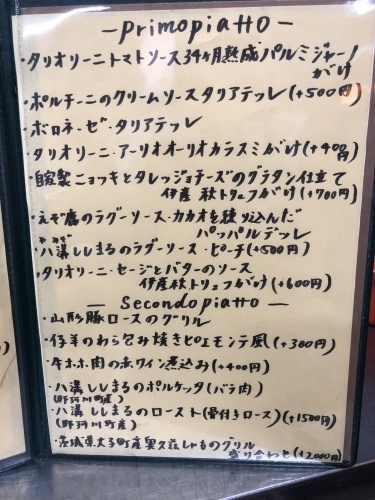 — Primopiatto —
・タリオリーニトマトソース34ヶ月熟成パルミジャーノ
がけ
・ポルチーニのクリームソースタリアテッレ(+500円)
・ボロネーゼ・タリアテッレ
タリオリーニ・アーリオオーリオカラスミがけ(+400円)
・自家製ニョッキとタレッジョチーズのグラタン仕立て
伊産 秋トリュフがけ(+700円)
・えぞ鹿のラグーソース・カカオを練り込んだ
パッパルデッレ
やみぞ
・八溝ししまるのラグーソース・ピーチ(+500円)
・タリオリーニ・セージとバターのソース
伊産秋トリュフがけ(+600円)
— Secondopiatto —
・山形豚ロースのグリル
・仔羊のわら包み焼きピエモンテ風(+300円)
・牛ホホ肉の赤ワイン煮込み(+400円)
・八溝ししまるのポルケッタ(バラ肉)
(那珂川町産)
・八溝ししまるのロースト(骨付きロース)(+1500円)
(那珂川町産)
・茨城県大子町産奥久慈しゃものグリル
盛り合わせ(+2000円)